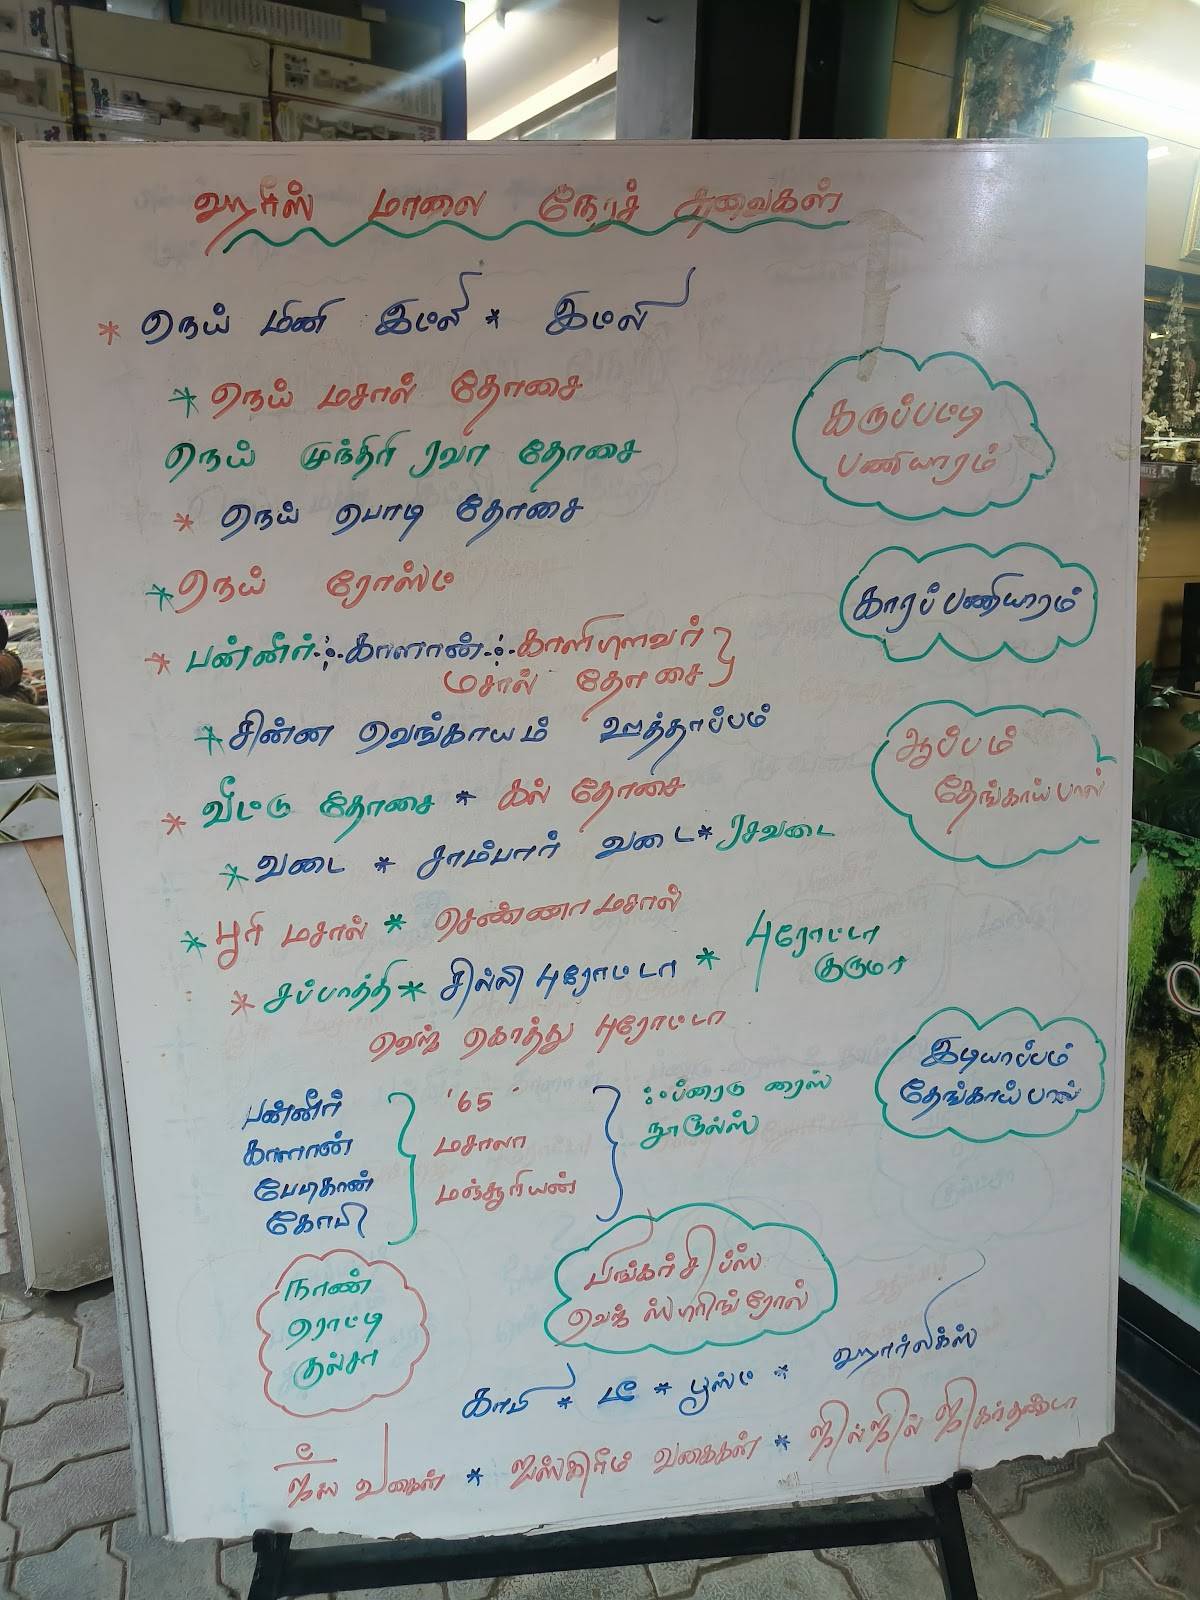 ஹரீஸ் மாலை நேரச் சுவைகள்
* நெய் மினி இட்லி * இட்லி
* நெய் மசால் தோசை
நெய் முந்திரி ரவா தோசை
* நெய் பொடி தோசை
* நெய் ரோஸ்ட்
* பன்னீர் காளான் காலிபுளவர்
மசால் தோசை
* சின்ன வெங்காயம் ஊத்தாப்பம்
* வீட்டு தோசை * கல் தோசை
* வடை * சாம்பார் வடை * ரசவடை
* பூரி மசால் * சென்னா மசால்
* சப்பாத்தி * சில்லி புரோட்டா * புரோட்டா
குருமா
வெஜ் கொத்து புரோட்டா
பன்னீர்
காளான்
பேபிகான்
கோபி
'65'
மசாலா
மஞ்சூரியன்
ஃப்ரைடு ரைஸ்
நூடுல்ஸ்
கருப்பட்டி
பணியாரம்
காரப் பணியாரம்
ஆப்பம்
தேங்காய் பால்
இடியாப்பம்
தேங்காய் பால்
நாண்
ரொட்டி
குல்சா
பிங்கர் சிப்ஸ்
வெஜ் ஸ்பிரிங் ரோல்
காபி * டீ * பூஸ்ட் * ஹார்லிக்ஸ்
ஜூஸ் வகைகள் * ஐஸ்கிரீம் வகைகள் * ஜில்ஜில் ஜிகர்தண்டா